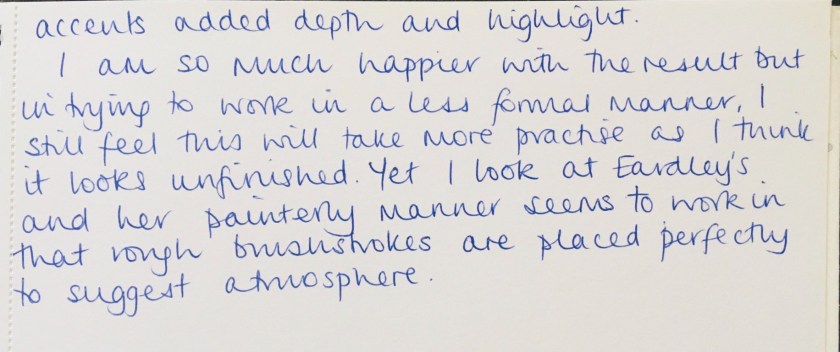 accents added depth and highlight.
I am so much happier with the result but
in trying to work in a less formal manner, I
still feel this will take more practise as I think
it looks unfinished. Yet I look at Eardley's
and her painterly manner seems to work in
that rough brushstrokes are placed perfectly
to suggest atmosphere.